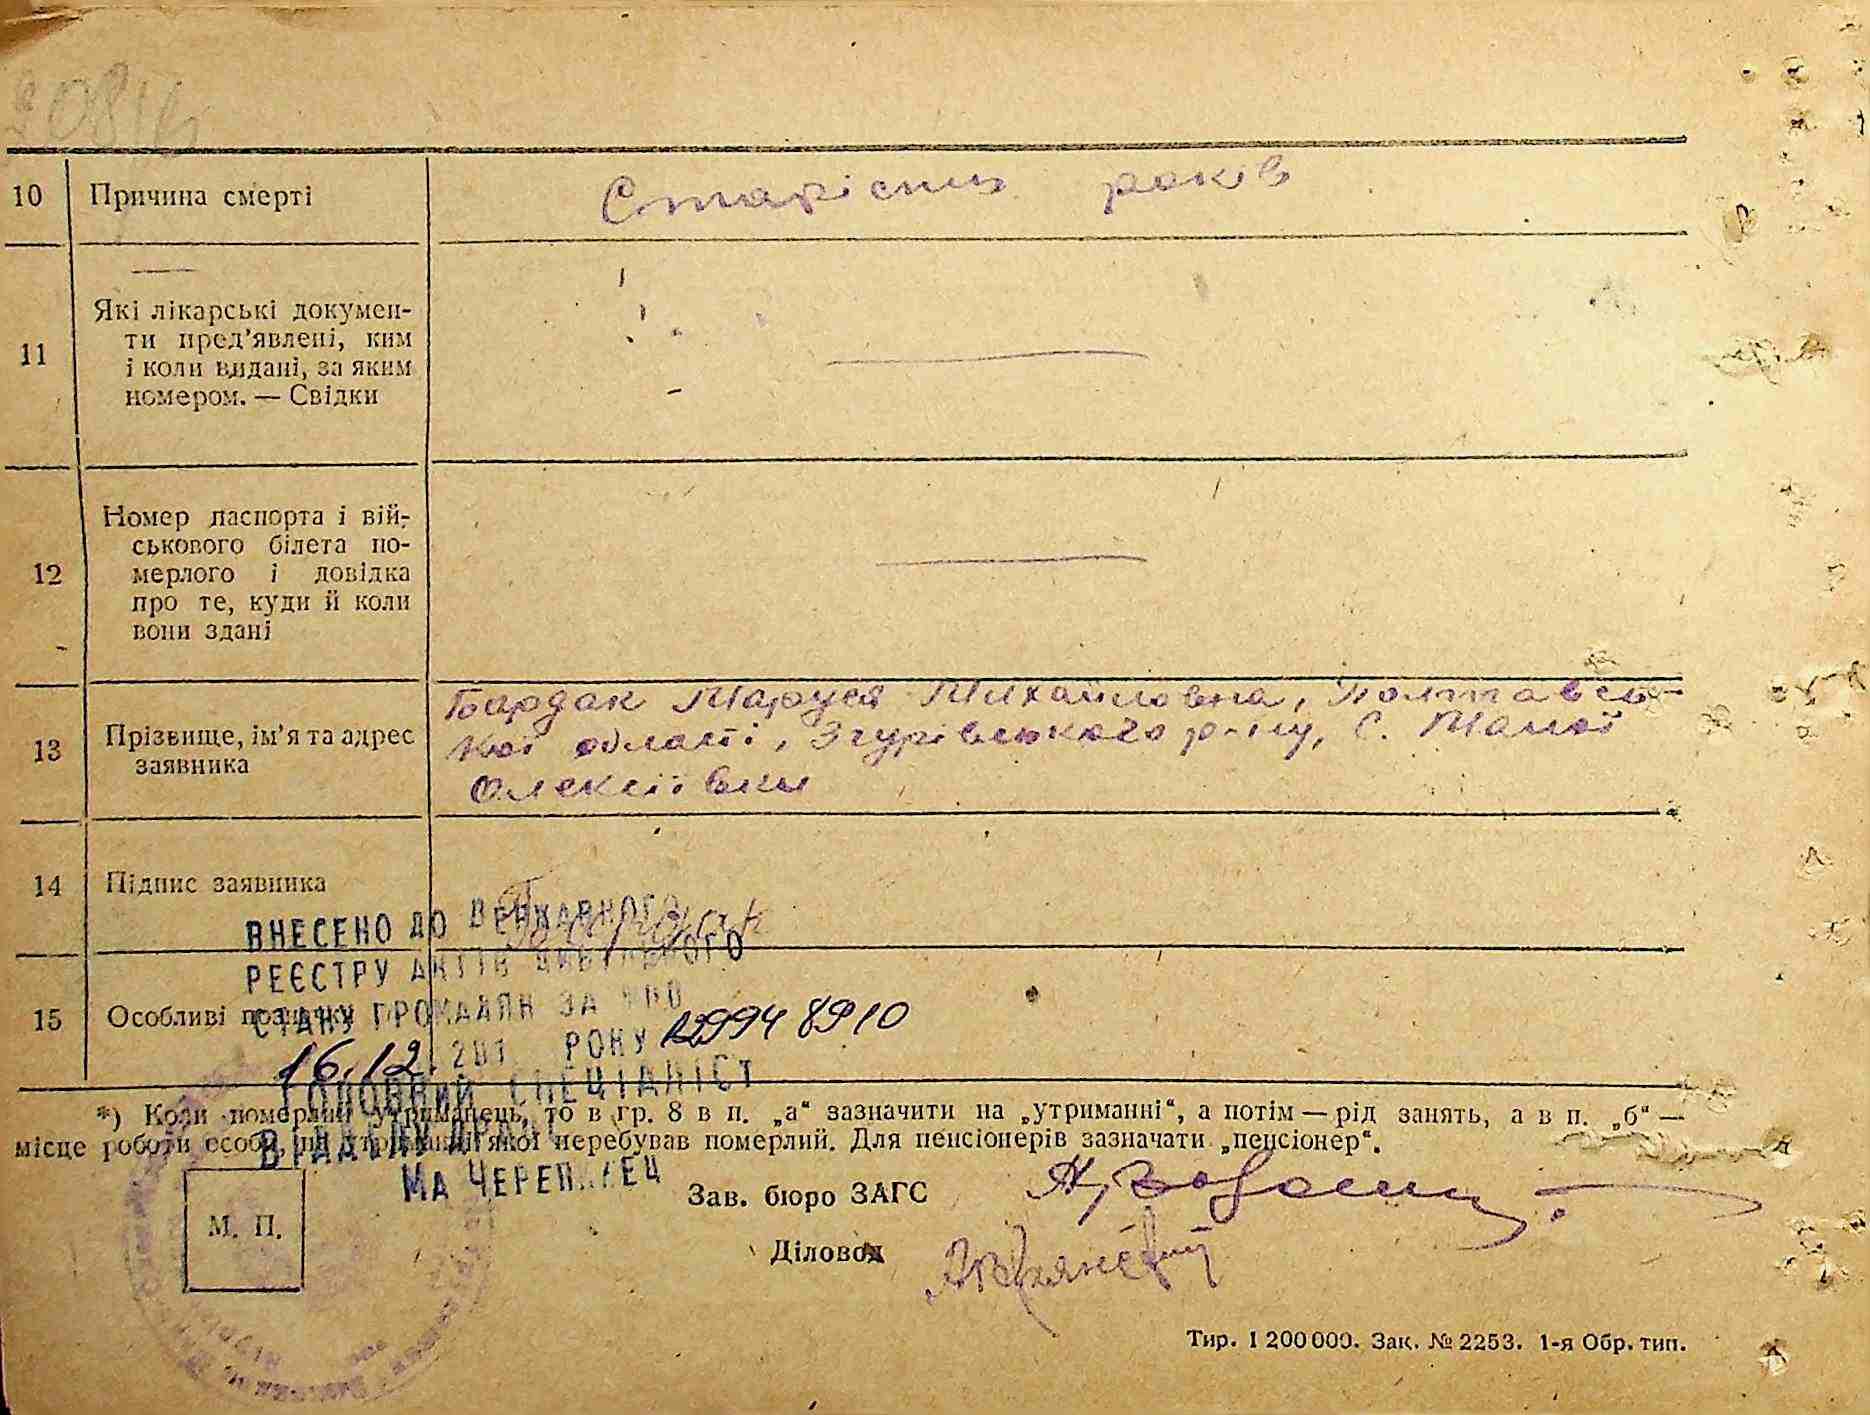 10 Причина смерті Старість років
11 Які лікарські докумен-
ти пред’явлені, ким
і коли видані, за яким
номером. — Свідки
12 Номер паспорта і вій-
ськового білета по-
мерлого і довідка
про те, куди й коли
вони здані
13 Прізвище, ім’я та адрес
заявника
Бардак Маруся Михайловна, Полтавсь-
кої області, Згурівського р-ну, с. Малої
Олексіївки
14 Підпис заявника
Бардак
15 Особливі позначки
ВНЕСЕНО ДО ДЕРЖАВНОГО
РЕЄСТРУ АКТІВ ЦИВІЛЬНОГО
СТАНУ ГРОМАДЯН ЗА
16.12.201 РОКУ 12994 8910
ГОЛОВНИЙ СПЕЦІАЛІСТ
ВІДДІЛУ ДРАЦС
МА ЧЕРЕПАНЕЦ
*) Коли померлий утриманець, то в гр. 8 в п. „а“ зазначити на „утриманні“, а потім — рід занять, а в п. „б“ —
місце роботи особи, на утриманні якої перебував померлий. Для пенсіонерів зазначати „пенсіонер“.
М. П.
Зав. бюро ЗАГС
Діловод
Тир. 1 200 000. Зак. № 2253. 1-я Обр. тип.